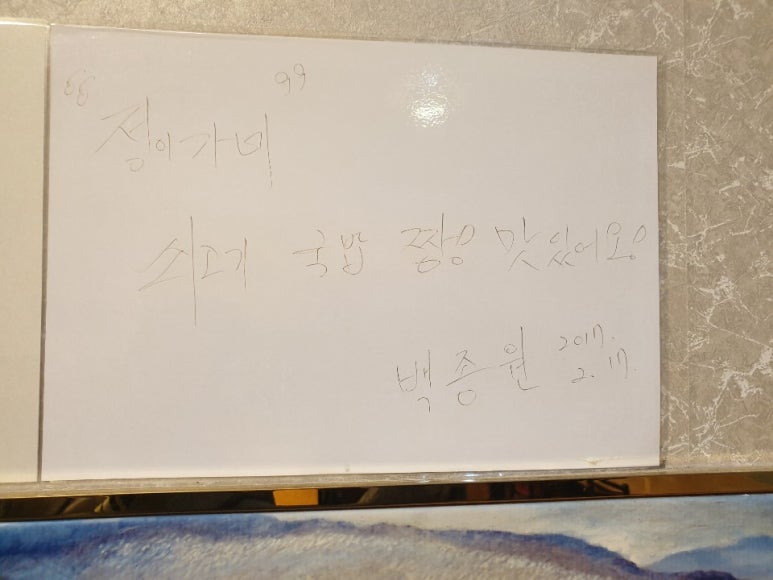 "정이가네"
쇠고기 국밥 짱! 맛있어요!
백종원 2017.
2. 17.